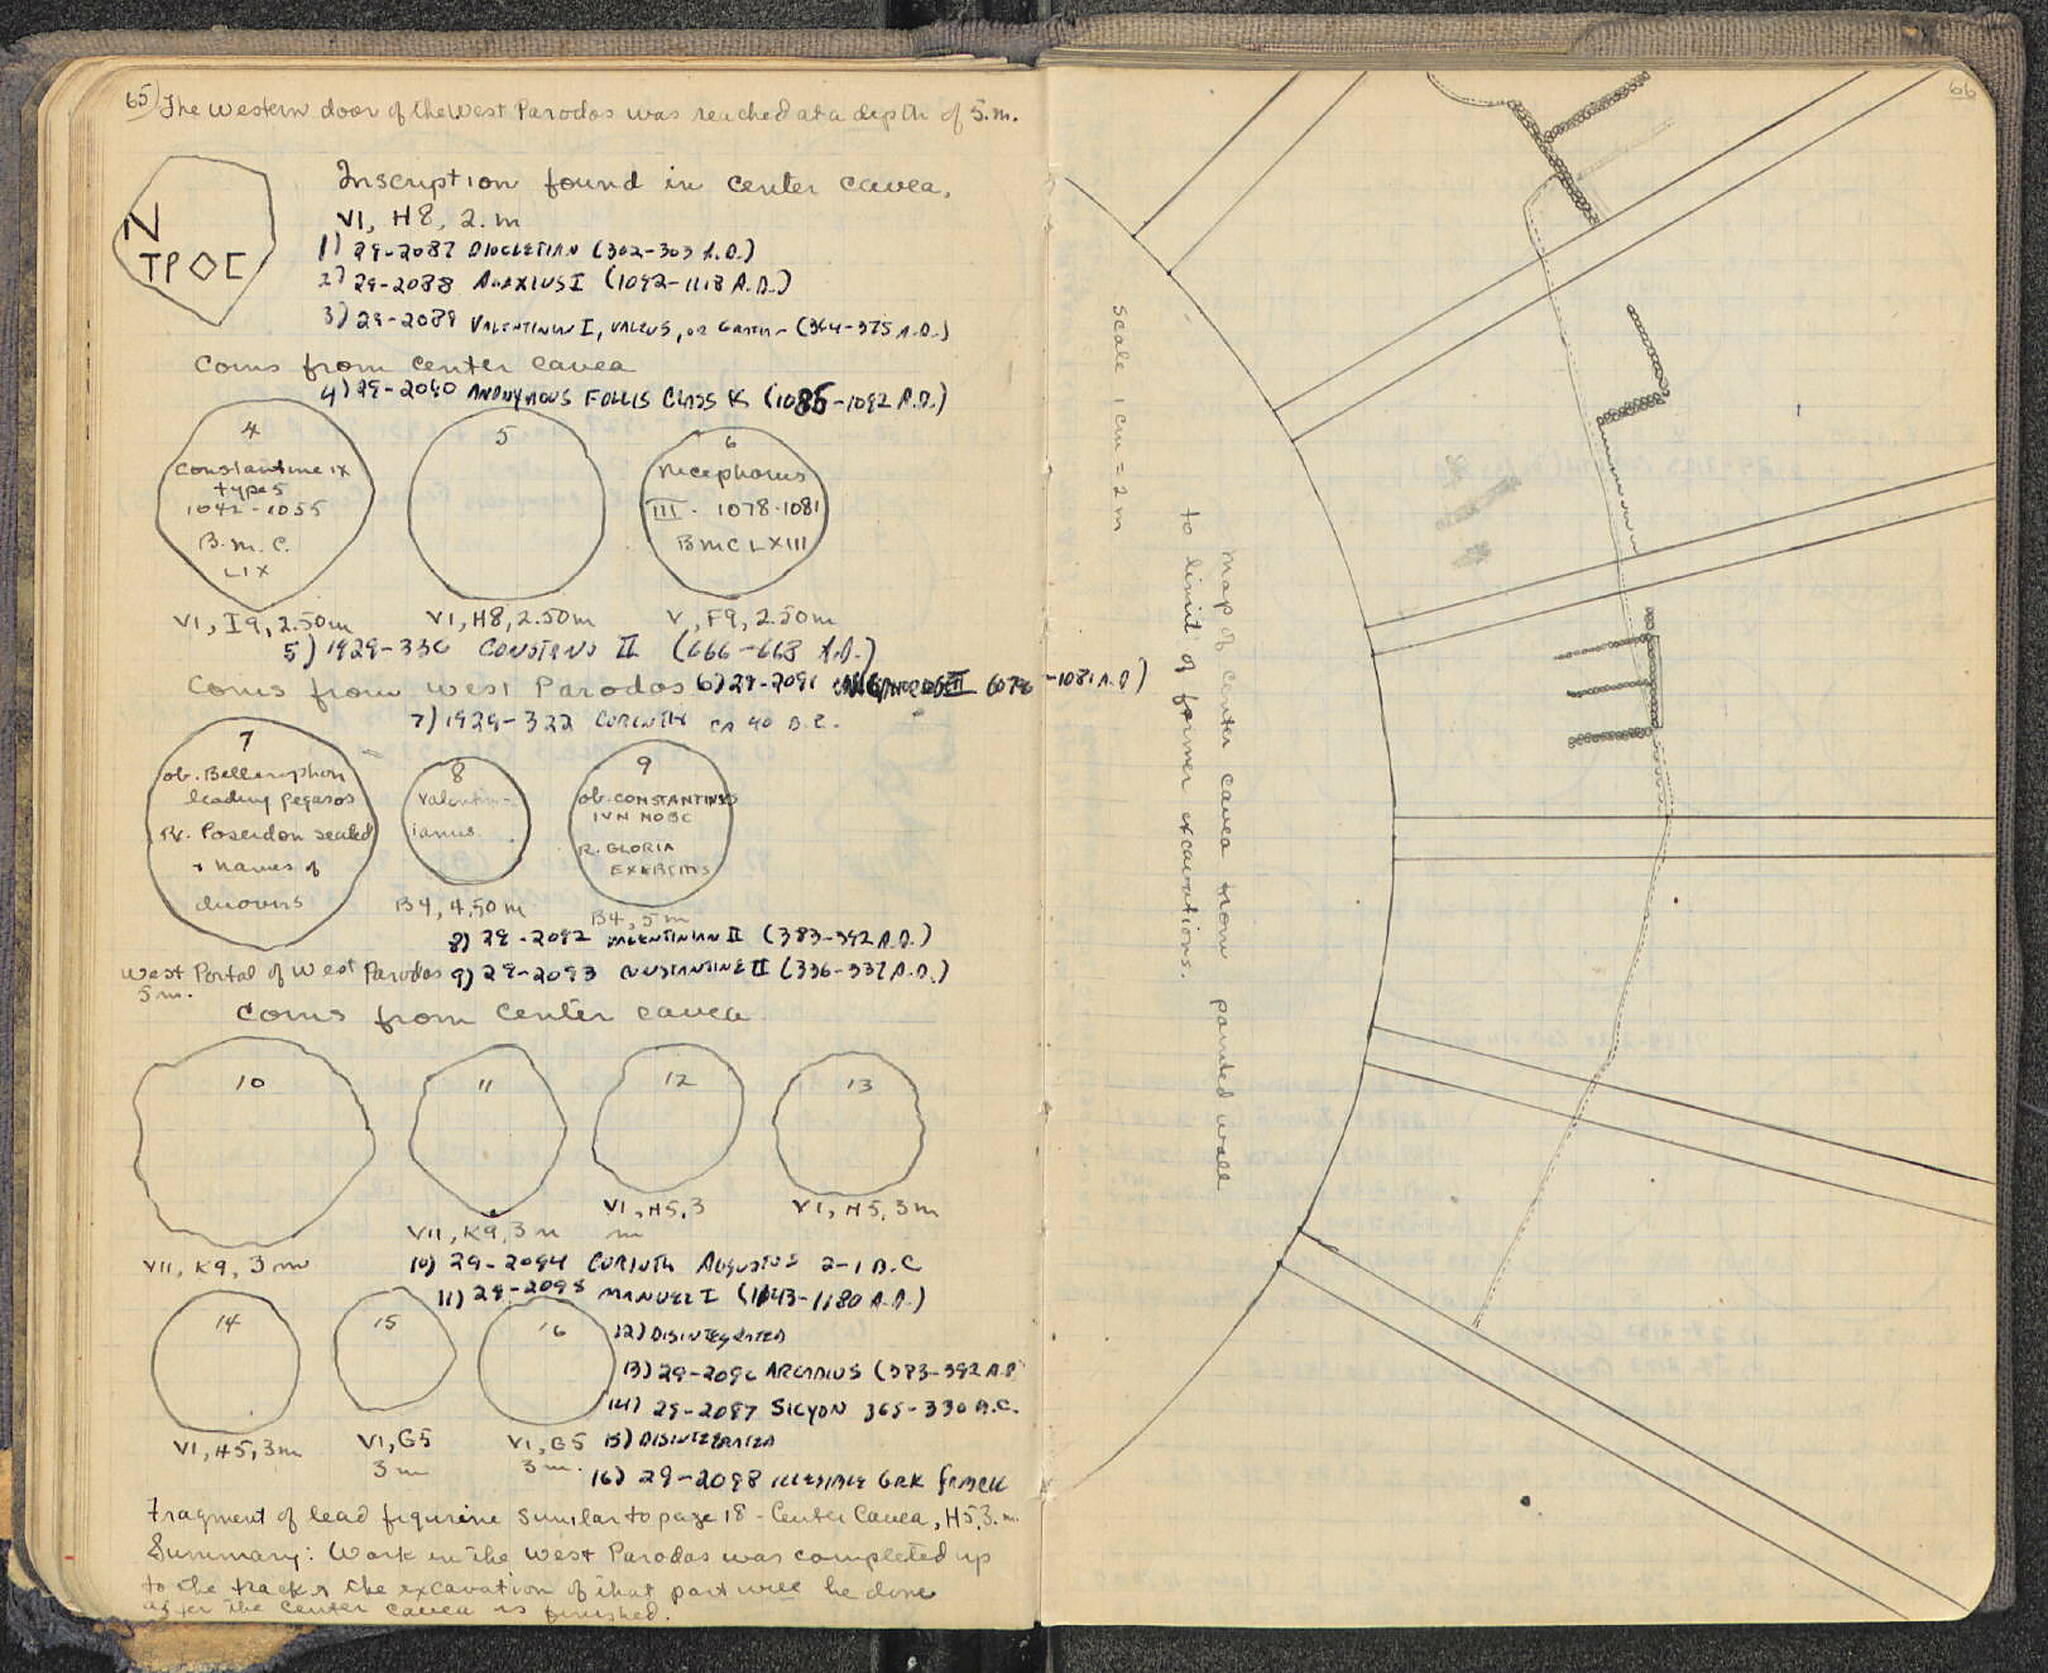 65) The western door of the West Parodos was reached at a depth of 5. m.
N
TPOC
Inscription found in center cavea,
VI, H8, 2. m
1) 29-2087 DIOCLETIAN (302-303 A.D.)
2) 29-2088 ALEXIUS I (1092-1118 A.D.)
3) 29-2089 VALENTINIAN I, VALENS, or GRATIAN (364-375 A.D.)
Coins from center cavea
4) 29-2090 ANONYMOUS FOLLIS CLASS K (1085-1092 A.D.)
4
Constantine IX
type 5
1042-1055
B.M.C.
LIX
5
6
Nicephorus
III. 1078-1081
BMC LXIII
VI, I9, 2.50m
VI, H8, 2.50m
V, F9, 2.50m
5) 1929-330 CONSTANS II (666-668 A.D.)
Coins from West Parodos
6) 29-2091 III -1081 A.D)
7) 1929-322 CORINTH ca 40 B.C.
7
ob. Bellerophon
leading pegasos
Rv. Poseidon seated
+ names of
duovirs
8
Valentin-
ianus
9
ob. CONSTANTINUS
IVN NOBC
R. GLORIA
EXERCITUS
B4, 4.50 m
B4, 5 m
8) 29-2092 VALENTINIAN II (383-392 A.D.)
West Portal of West Parodos
5 m.
9) 29-2093 CONSTANTINE II (336-337 A.D.)
Coins from center cavea
10
11
12
13
VII, K9, 3 m
VII, K9, 3 m
VI, H5, 3
m
VI, H5, 3m
10) 29-2094 CORINTH Augustus 2-1 B.C
11) 29-2095 MANUEL I (1143-1180 A.D.)
14
15
16
12) DISINTEGRATED
13) 29-2096 ARCADIUS (383-392 A.D
14) 29-2097 SICYON 365-330 B.C.
VI, H5, 3m
VI, G5
3 m
VI, G5
3 m.
15) DISINTEGRATED
16) 29-2098 ILLEGIBLE GRK
Fragment of lead figurine similar to page 18 - Center Cavea, H5, 3. m.
Summary: Work in the West Parodos was completed up
to the track & the excavation of that part will be done
after the center cavea is finished.
66
Scale 1 cm = 2 m
Map of center cavea from painted wall
to limit of former excavations.